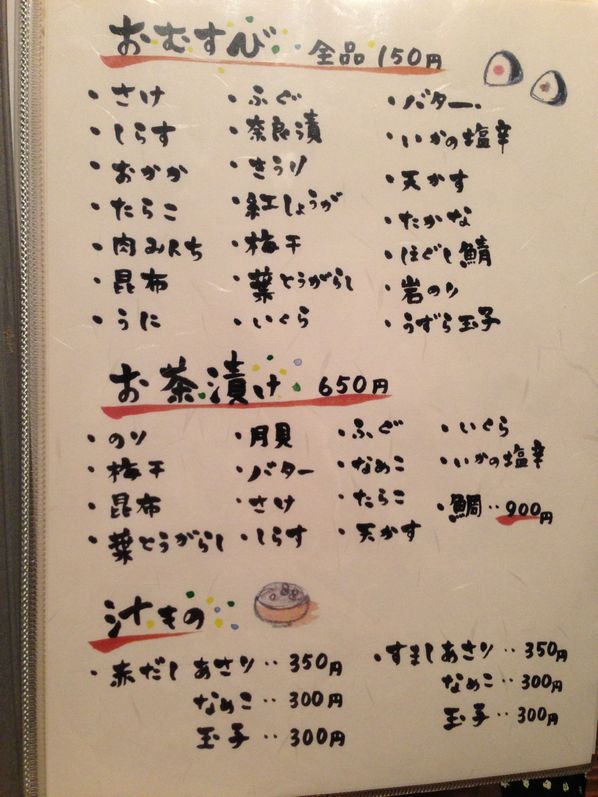 おむすび 全品150円
・さけ ・ふぐ ・バター
・しらす ・奈良漬 ・いかの塩辛
・おかか ・きうり ・天かす
・たらこ ・紅しょうが ・たかな
・肉みんち ・梅干 ・ほぐし鯖
・昆布 ・葉とうがらし ・岩のり
・うに ・いくら ・うずら玉子
お茶漬け 650円
・のり ・月貝 ・ふぐ ・いくら
・梅干 ・バター ・なめこ ・いかの塩辛
・昆布 ・さけ ・たらこ ・鯛‥900円
・葉とうがらし ・しらす ・天かす
汁もの
・赤だし あさり‥350円 ・すまし あさり‥350円
なめこ‥300円 なめこ‥300円
玉子‥300円 玉子‥300円